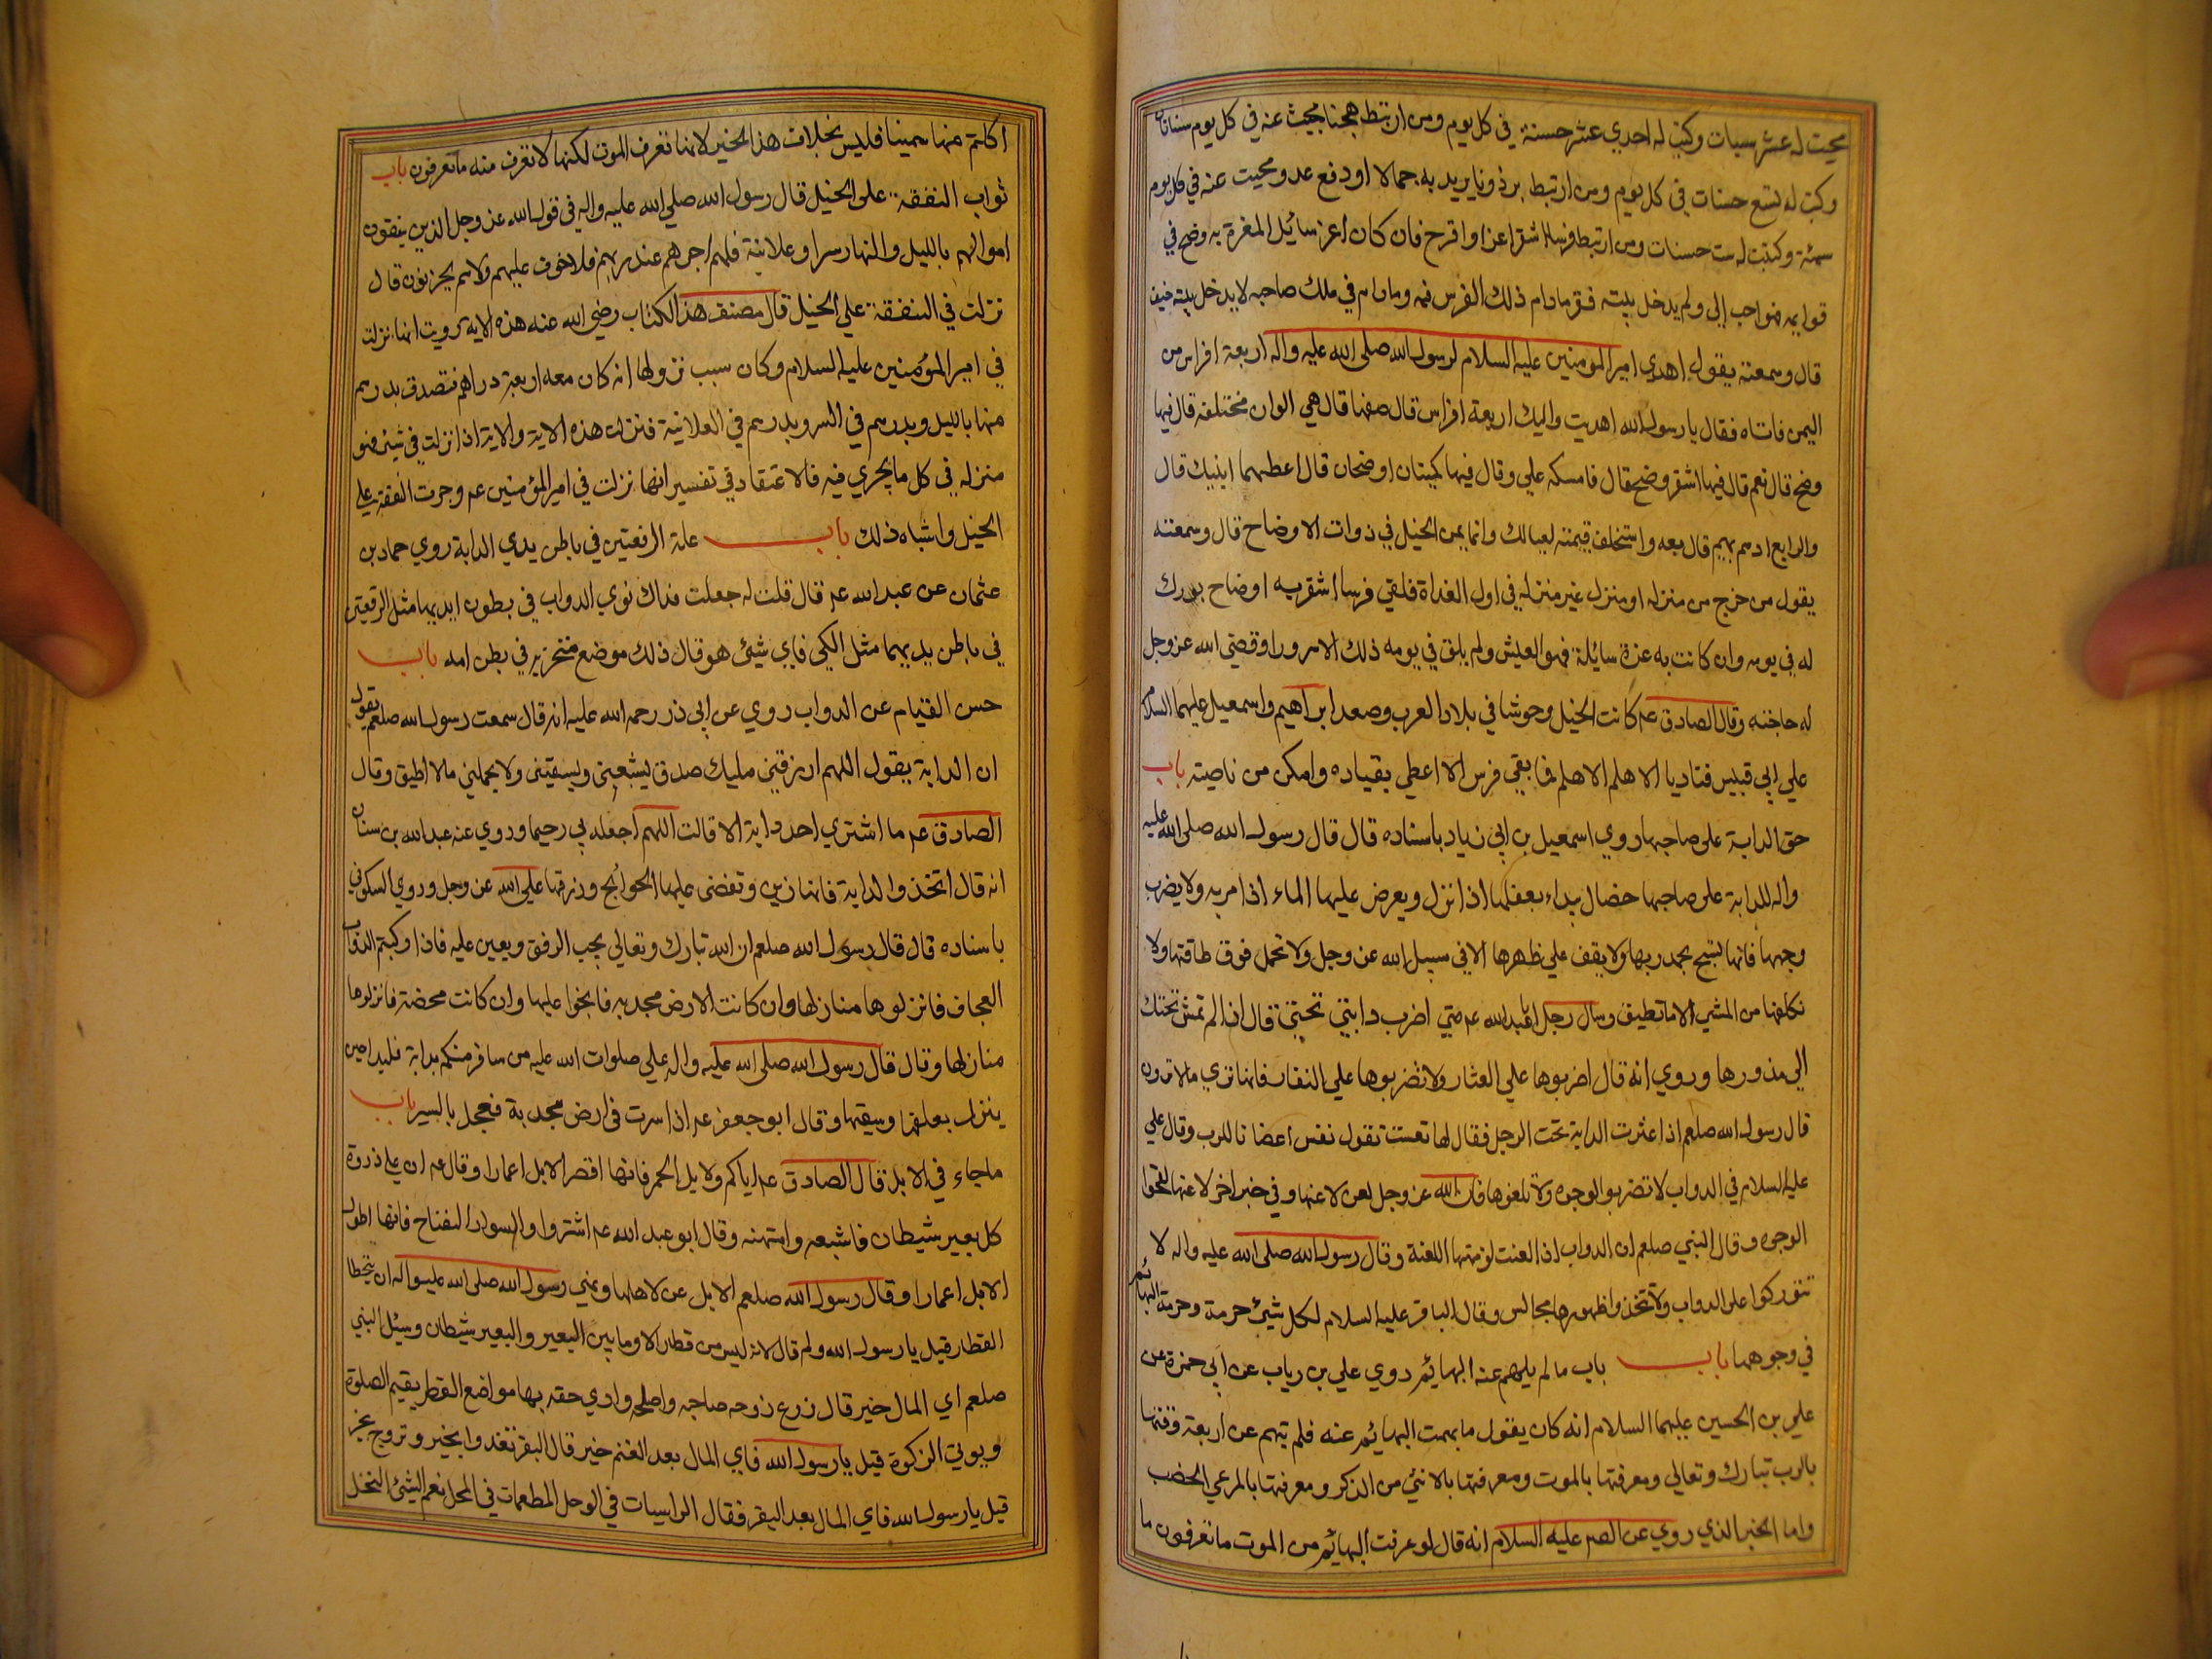 محيت له عشر سيات وكتب له احدي عشر حسنة في كل يوم ومن ارتبط هجينا محيت عنه في كل يوم سيئاتان
وكتب له تسع حسنات في كل يوم ومن ارتبط برذونا يريد به جمالا اودفع عدو محيت عنه في كل يوم
سيئة وكتبت له ست حسنات ومن ارتبط فرسا اشقر اعزا واقرح فان كان اعز سائل المغرة به وضح في
قوايمه فهو احب الي ولم يدخل بيته فقر مادام ذلك الفرس فيه ومادام في ملك صاحبه لا يدخل بيته حيف
قال وسمعته يقول اهدي امير المومنين عليه السلام لرسول الله صلى الله عليه واله اربعة افراس من
اليمن فاتاه فقال يا رسول الله اهديت واليك اربعة افراس قال صفها قال هي الوان مختلفه قال فيها
وضح قال نعم قال فيها اشقر وضح قال فامسكه علي وقال فيها كميتان اوضحان قال اعطهما ابنيك قال
والرابع ادهم بهيم قال بعه واستخلف قيمته لعيالك وانما يمن الخيل في ذوات الاوضاح قال وسمعته
يقول من خرج من منزله او منزل غير منزله في اول الغداة فلقي فرسا اشقر به اوضاح بورك
له في يومه وان كانت به عزة سائلة فهو العيش ولم يلق في يومه ذلك الاسرورا وقضي الله عزوجل
له حاجته وقال الصادق عه كانت الخيل وحوشا في بلاد العرب وصعد ابراهيم واسمعيل عليهما السلام
علي ابي قبيس فناديا الا هلم الا هلم فما بقي فرس الا اعطي بقياده وامكن من ناصيته باب
حق الدابة على صاحبها روي اسمعيل بن ابي زياد باسناده قال قال رسول الله صلى الله عليه
واله للدابة على صاحبها خصال يبداء بعلفها اذا نزل ويعرض عليها الماء اذا مر به ولا يضرب
وجهها فانها تسبح بحمد ربها ولا يقف علي ظهرها الا في سبيل الله عز وجل ولا تحمل فوق طاقتها ولا
تكلفها من المشي الا ما تطيق وسال رجل ابا عبد الله عه متي اضرب دابتي تحتي قال اذا لم تمش تحتك
الي مذورها وروي انه قال اضربوها علي العثار ولا تضربوها علي النفار فانها تري ما لا ترون
قال رسول الله صلعم اذا عثرت الدابة تحت الرجل فقال لها تعست تقول تعس اعصانا للرب وقال علي
عليه السلام في الدواب لا تضربوا الوجوه ولا تلعنوها فان الله عز وجل لعن لاعنها وفي خبر اخر لاعنها لا تقبحوا
الوجوه وقال النبي صلعم ان الدواب اذا لعنت لزمتها اللعنة وقال رسول الله صلى الله عليه واله لا
تتوركوا على الدواب ولا تتخذوا ظهورها مجالس وقال الباقر عليه السلام لكل شيئ حرمة وحرمة البهائم
في وجوهها باب باب ما لم يبهم عنه البهائم روي علي بن رياب عن ابي حمزة عن
علي بن الحسين عليهما السلام انه كان يقول ما بهمت البهائم عنه فلم تبهم عن اربعة معرفتها
بالرب تبارك وتعالي ومعرفتها بالموت ومعرفتها بالانثي من الذكر ومعرفتها بالمرعي الخصب
واما الخبر الذي روي عن الصر عليه السلام انه قال لو عرفت البهائم من الموت ما تعرفون ما
اكلتم منها سمينا فليس بخلاف هذا الخبر لانها تعرف الموت لكنها لا تعرف منه ما تعرفون باب
ثواب النفقة على الخيل قال رسول الله صلي الله عليه واله في قول الله عز وجل الذين ينفقون
اموالهم بالليل والنهار سرا وعلانية فلهم اجرهم عند ربهم فلا خوف عليهم ولا هم يحزنون قال
نزلت في النفقة علي الخيل قال مصنف هذا الكتاب رضي الله عنه هذه الايه رويت انها نزلت
في امير المؤمنين عليه السلام وكان سبب نزولها انه كان معه اربعة دراهم فتصدق بدرهم
منها بالليل وبدرهم في السر وبدرهم في العلانية فنزلت هذه الاية والاية اذا نزلت في شيئ فهو
منزله في كل ما يجري فيه فالاعتقاد في تفسيرانها نزلت في امير المؤمنين عه وجرت النفقة علي
الخيل واشباه ذلك باب علة الرقعتين في باطن يدي الدابة روي حماد بن
عثمان عن عبد الله عه قال قلت له جعلت فداك نري الدواب في بطون ايديها مثل الرقعتين
في باطن يديهما مثل الكي فاي شيئ هو قال ذلك موضع منخريه في بطن امه باب
حس القيام عن الدواب روي عن ابي ذر رحمه الله عليه انه قال سمعت رسول الله صلعم يقول
ان الدابة يقول اللهم ارزقني مليك صدق يشبعني ويسقيني ولا يحملني مالا اطيق وقال
الصادق عه ما اشتري احد دابة الا قالت اللهم اجعله بي رحيما وروي عنه عبد الله بن سنان
انه قال اتخذوا الدابة فانها زين وتقضى عليها الحوائج ورزقها علي الله عز وجل وروي السكوني
باسناده قال قال رسول الله صلعم ان الله تبارك وتعالي يحب الرفق ويعين عليه فاذا ركبتم الدواب
العجاف فانزلوها منازلها وان كانت الارض مجدبه فانجوا عليها وان كانت مخصة فانزلوها
منازلها وقال قال رسول الله صلى الله عليه واله علي صلوات الله عليه من سافر منكم بدابة فليبدا حين
ينزل بعلفها وسقيها وقال ابو جعفر عه اذا سرت في ارض مجدبة فعجل بالسير باب
ماجاء في الابل قال الصادق عه اياكم ولابل الحمر فانها اقصر الابل اعمارا وقال عه ان علي ذروة
كل بعير شيطان فاشبعه وامتهنه وقال ابو عبد الله عه اشتروا والسواد النفتاح فانها اطول
الابل اعمارا وقال رسول الله صلعم الابل عن لاهلها ونهي رسول الله صلى الله عليه واله ان يتخطا
القطار قيل يا رسول الله ولم قال لانه ليس من قطار الا وما بين البعير والبعير شيطان وسئل النبي
صلعم اي المال خير قال زرع زرعه صاحبه واصلحه وادي حقه بها مواضع القطر يقيم الصلوة
ويوتي الزكوة قيل يا رسول الله فاي المال بعد الغنم خير قال البقر تغدوا بخير وتروح بخير
قيل يا رسول الله فاي المال بعد البقر فقال الراسيات في الوحل المطعمات في المحل نعم الشيئ النخل